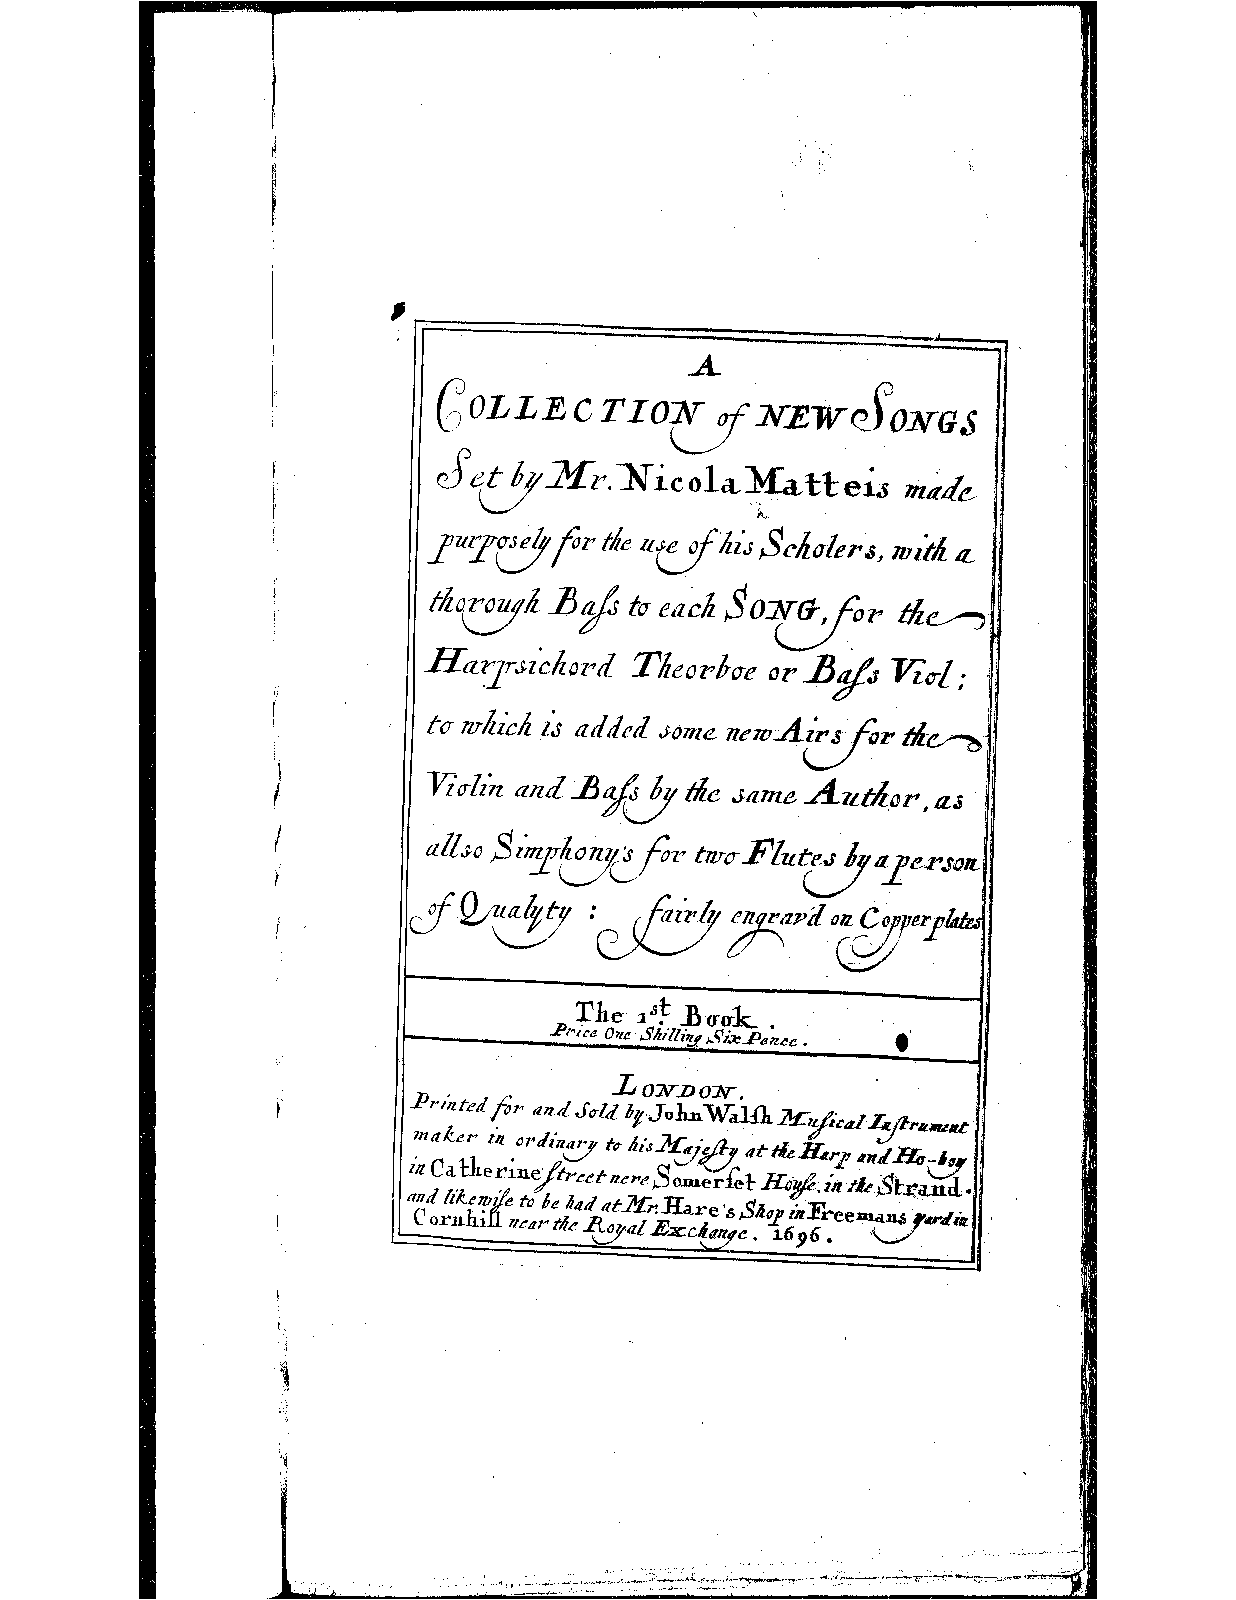 A
COLLECTION of NEW SONGS
Set by Mr. Nicola Matteis made
purposely for the use of his Scholers, with a
thorough Baſs to each SONG, for the
Harpsichord Theorboe or Baſs Viol;
to which is added some new Airs for the
Violin and Baſs by the same Author, as
allso Simphony's for two Flutes by a person
of Qualyty : fairly engrav'd on Copper plates
The 1st. Book.
Price One Shilling Six Pence.
LONDON.
Printed for and Sold by John Walſh Muſical Inſtrument
maker in ordinary to his Majeſty at the Harp and Ho-boy
in Catherine ſtreet nere Somerſet Houſe in the Strand.
and likewiſe to be had at Mr. Hare's Shop in Freemans yard in
Cornhill near the Royal Exchange. 1696.